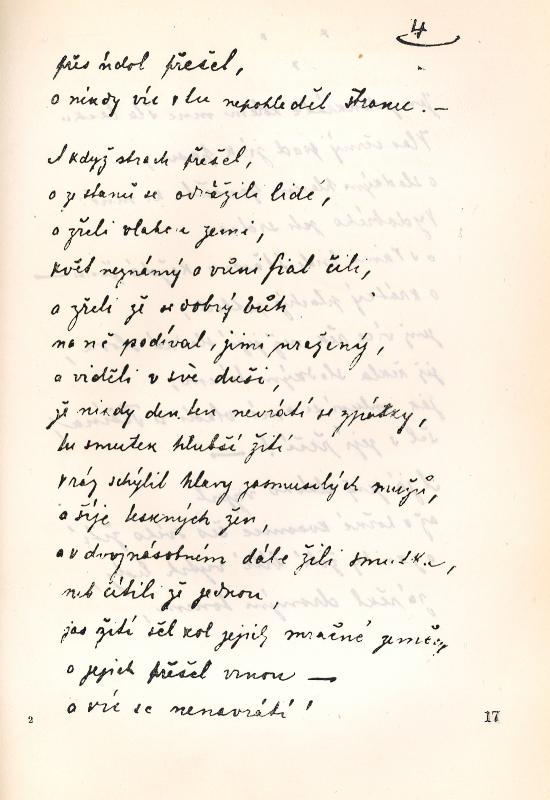 4
přes údol přešel,
a nikdy víc v tu nepohleděl stranu. –
A když strach přešel,
a ze stanů se odvážili lidé,
a zřeli vlahou zemi,
květ neznámý a vůni fial čili,
a zřeli že se dobrý bůh
na ně podíval, jimi uražený,
a viděli v své duši,
že nikdy den ten nevrátí se zpátky,
tu smutek hlubší žití
v ráz schýlil hlavy zasmušilých mužů,
a šíje leskných žen,
a v dvojnásobném dále žili smutku,
neb cítili že jednou,
jas žití šel kol jejich mračné země,
a jejich přešel vinou —
a víc se nenavrátí!
2
17